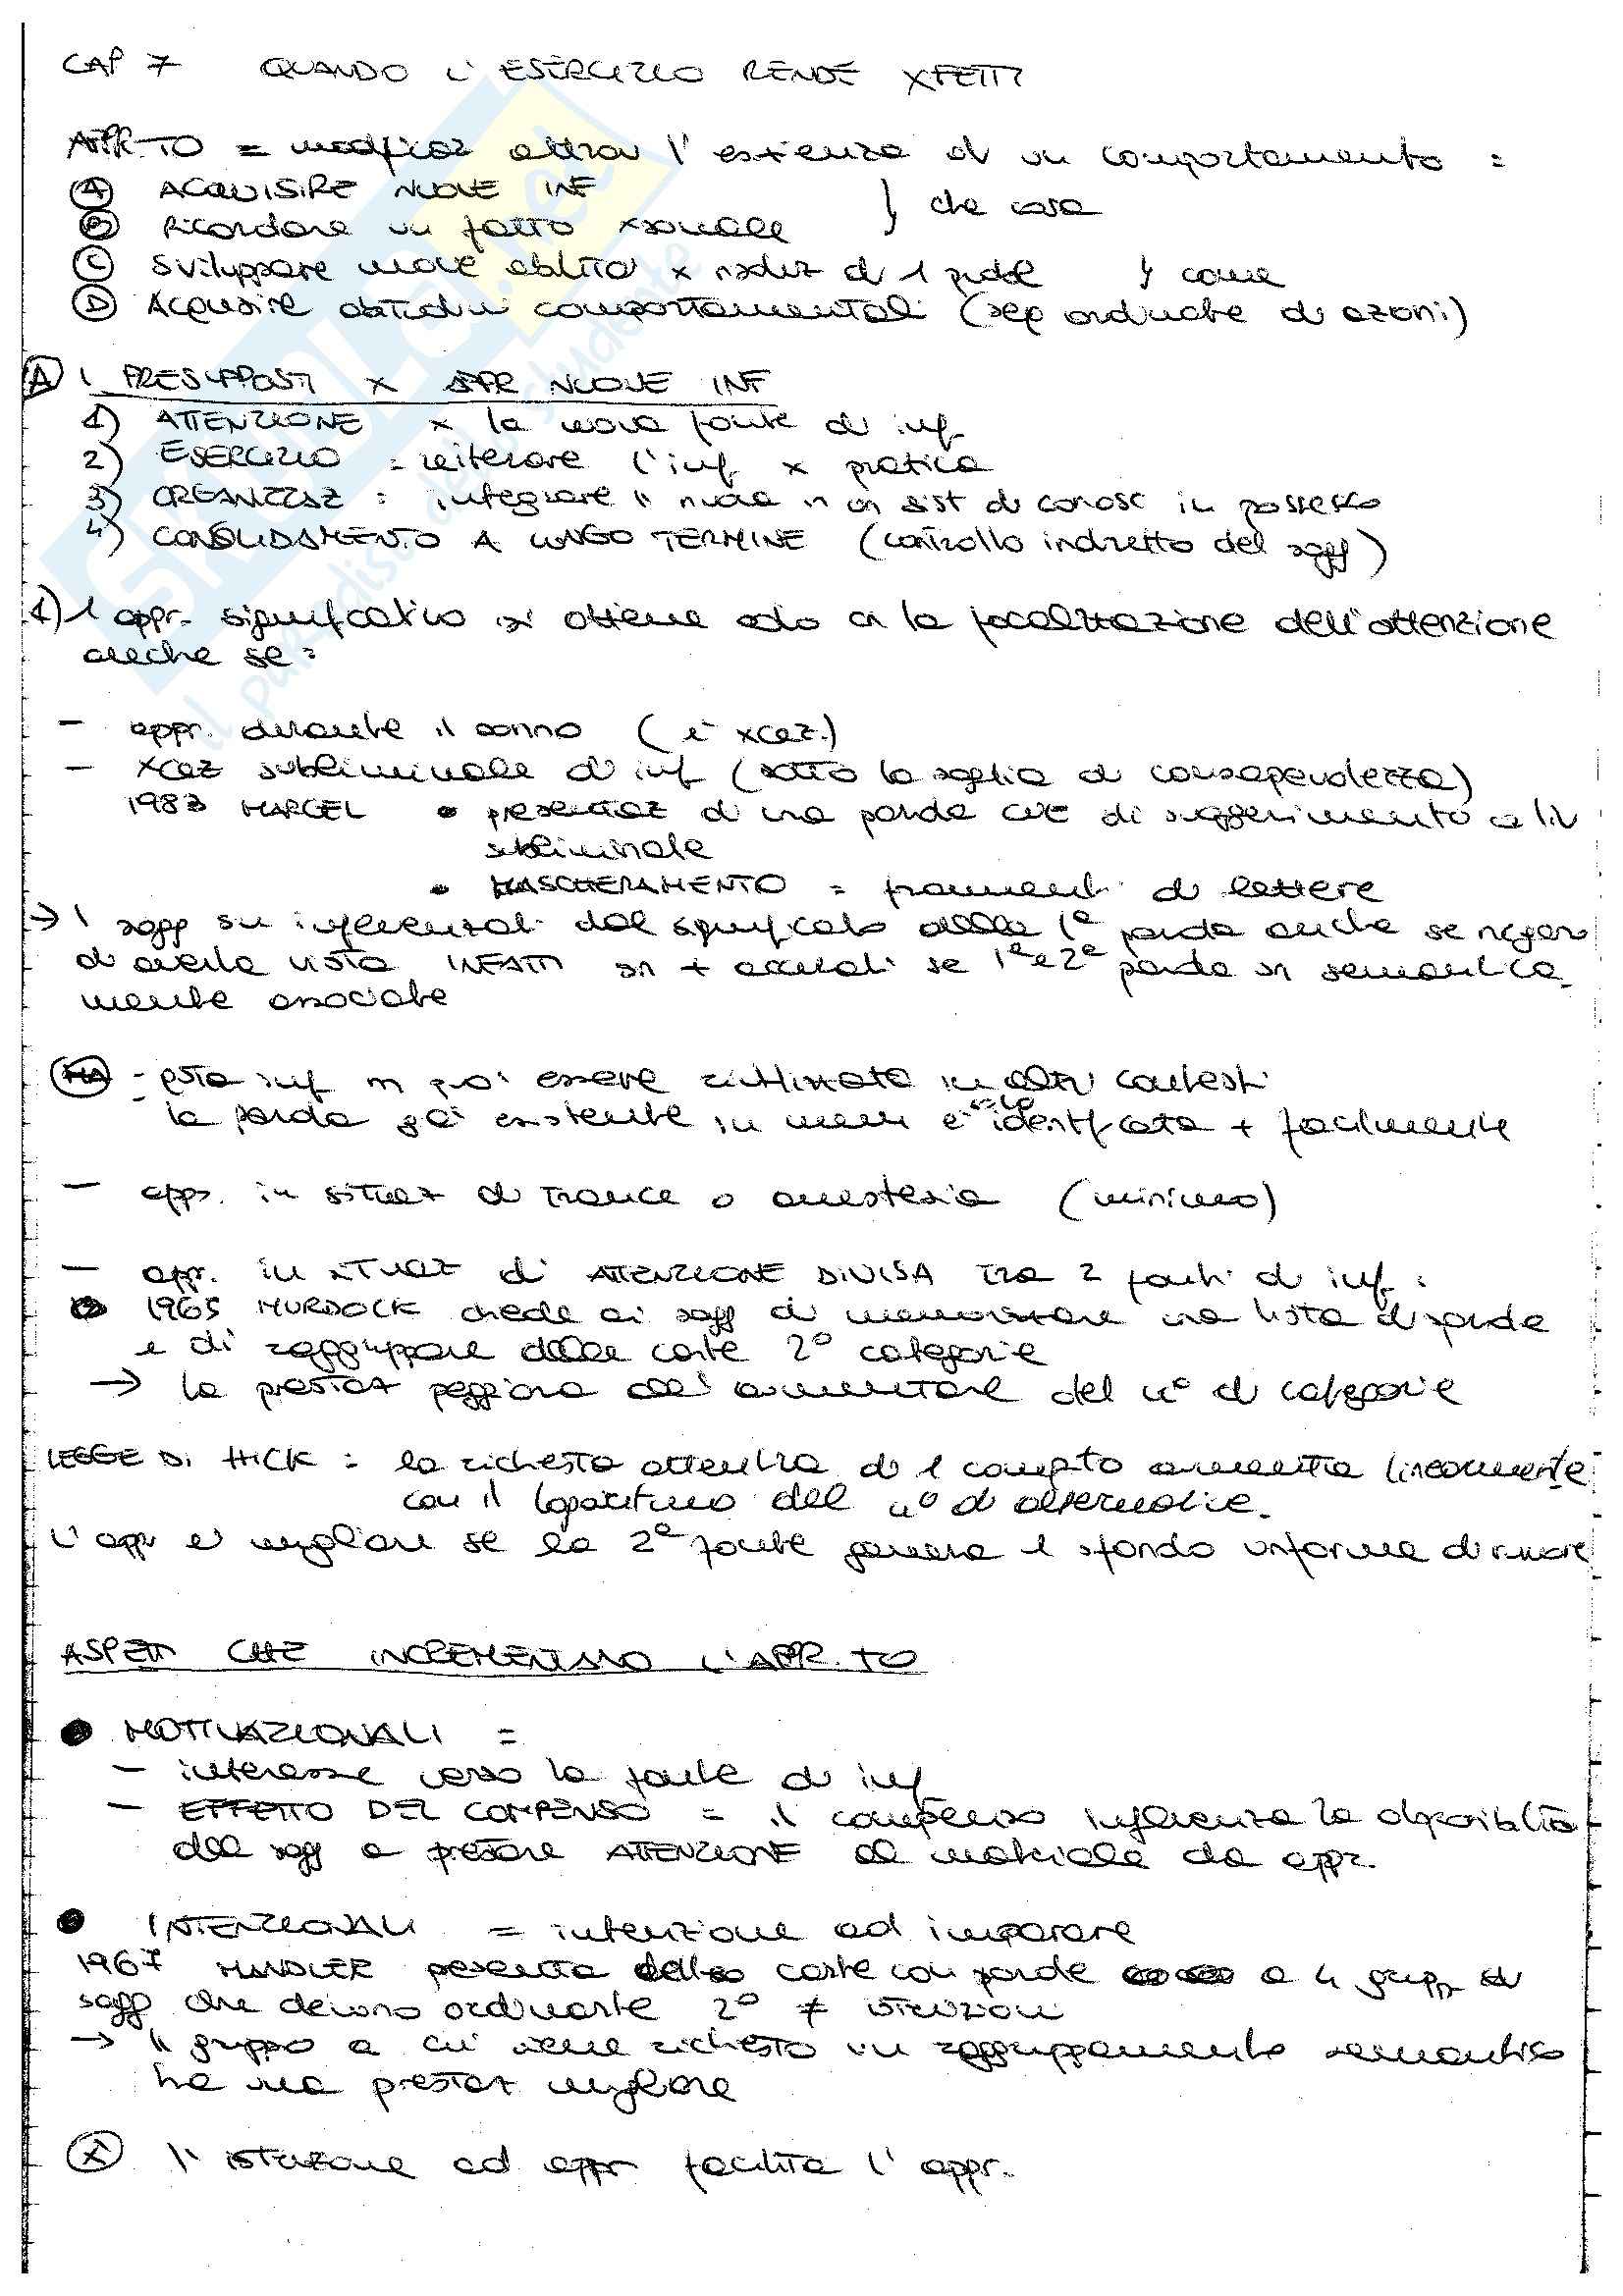 CAP 7 QUANDO L'ESERCIZIO RENDE XFETTI
APPR.TO = modificaz attrav l'esperienza di un comportamento =
A ACQUISIRE NUOVE INF } che cosa
B Ricordare un fatto xsonale
C Sviluppare nuove abilità x risoluz di 1 probl } come
D Acquisire abitudini comportamentali (seq ordinate di azioni)
A I PRESUPPOSTI X APPR NUOVE INF
1) ATTENZIONE x la nuova fonte di inf
2) ESERCIZIO = reiterare l'inf x pratica
3) ORGANIZZAZ = integrare il nuovo in un sist di conosc in possesso
4) CONSOLIDAMENTO A LUNGO TERMINE (controllo indiretto del sogg)
1) 1 appr. significativo si ottiene solo cn la focalizzazione dell'attenzione
anche se =
- appr. durante il sonno (è xcez.)
- xcez subliminale di inf (sotto la soglia di consapevolezza)
1983 MARCEL • presentaz di una parola CHE dà suggerimento a liv
subliminale
• MASCHERAMENTO = frammenti di lettere
→ I sogg sn influenzati dal significato della 1ª parola anche se negano
di averla vista INFATTI sn + accurati se 1ª e 2ª parola sn semantica_
mente associate
MA - qsta inf nn può essere riutilizzata in altri contesti
- la parola già esistente in mem è solo identificata + facilmente
- appr. in situaz di trance o anestesia (minimo)
- appr. in situaz di ATTENZIONE DIVISA TRA 2 fonti di inf :
• 1965 MURDOCK chiede ai sogg di memorizzare una lista di parole
e di raggruppare delle carte 2° categorie
→ la prestaz peggiora all'aumentare del n° di categorie
LEGGE DI HICK = la richiesta attentiva di 1 compito aumenta linearmente
con il logaritmo del n° di alternative.
L'appr è migliore se la 2ª fonte genera 1 sfondo uniforme di rumore
ASPETTI CHE INCREMENTANO L'APPR.TO
• MOTIVAZIONALI =
- interesse verso la fonte di inf
- EFFETTO DEL COMPENSO = il compenso influenza la disponibilità
del sogg a prestare ATTENZIONE al materiale da appr.
• INTENZIONALI = intenzione ad imparare
1967 MANDLER presenta delle carte con parole a 4 gruppi di
sogg che devono ordinarle 2° ≠ istruzioni
→ Il gruppo a cui viene richiesto un raggruppamento semantico
ha una prestaz migliore
X l'istruzione ad appr facilita l'appr.